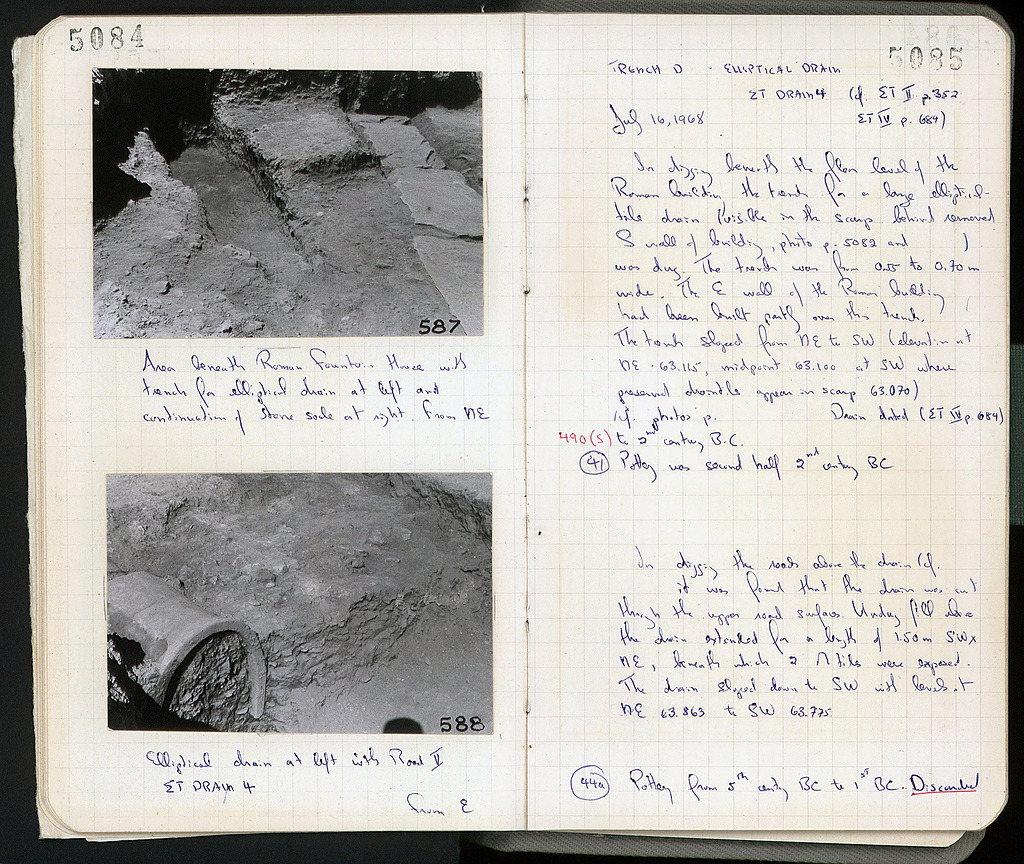 5084
587
Area beneath Roman Fountain House with
trench for elliptical drain at left and
continuation of stone socle at right. From NE
588
Elliptical drain at left with Road II
ΣT DRAIN 4
From E
5085
TRENCH D - ELLIPTICAL DRAIN
ΣT DRAIN 4 (cf. ΣT II p. 352
July 16, 1968 ΣT IV p. 684)
In digging beneath the floor level of the
Roman building the trench for a large elliptical-
tile drain (visible in the scarp behind removed
S wall of building, photo p. 5082 and )
was dug. The trench was from 0.55 to 0.70 m
wide. The E wall of the Roman building
had been built partly over this trench.
The trench sloped from NE to SW (elevation at
NE - 63.115, midpoint 63.100 at SW where
preserved drain tiles appear in scarp 63.070)
(cf. photos p. Drain dated (ΣT IV p. 684)
490(S) to 2nd century B.C.
41 Pottery was second half 2nd century BC
In digging the roads above the drain (cf.
it was found that the drain was cut
through the upper road surfaces. Undug fill
the drain extended for a length of 1.50 m SW x
NE, beneath which 2 tiles were exposed.
The drain sloped down to SW with levels at
NE 63.863 to SW 63.775
44a Pottery from 5th century BC to 1st BC. Discarded